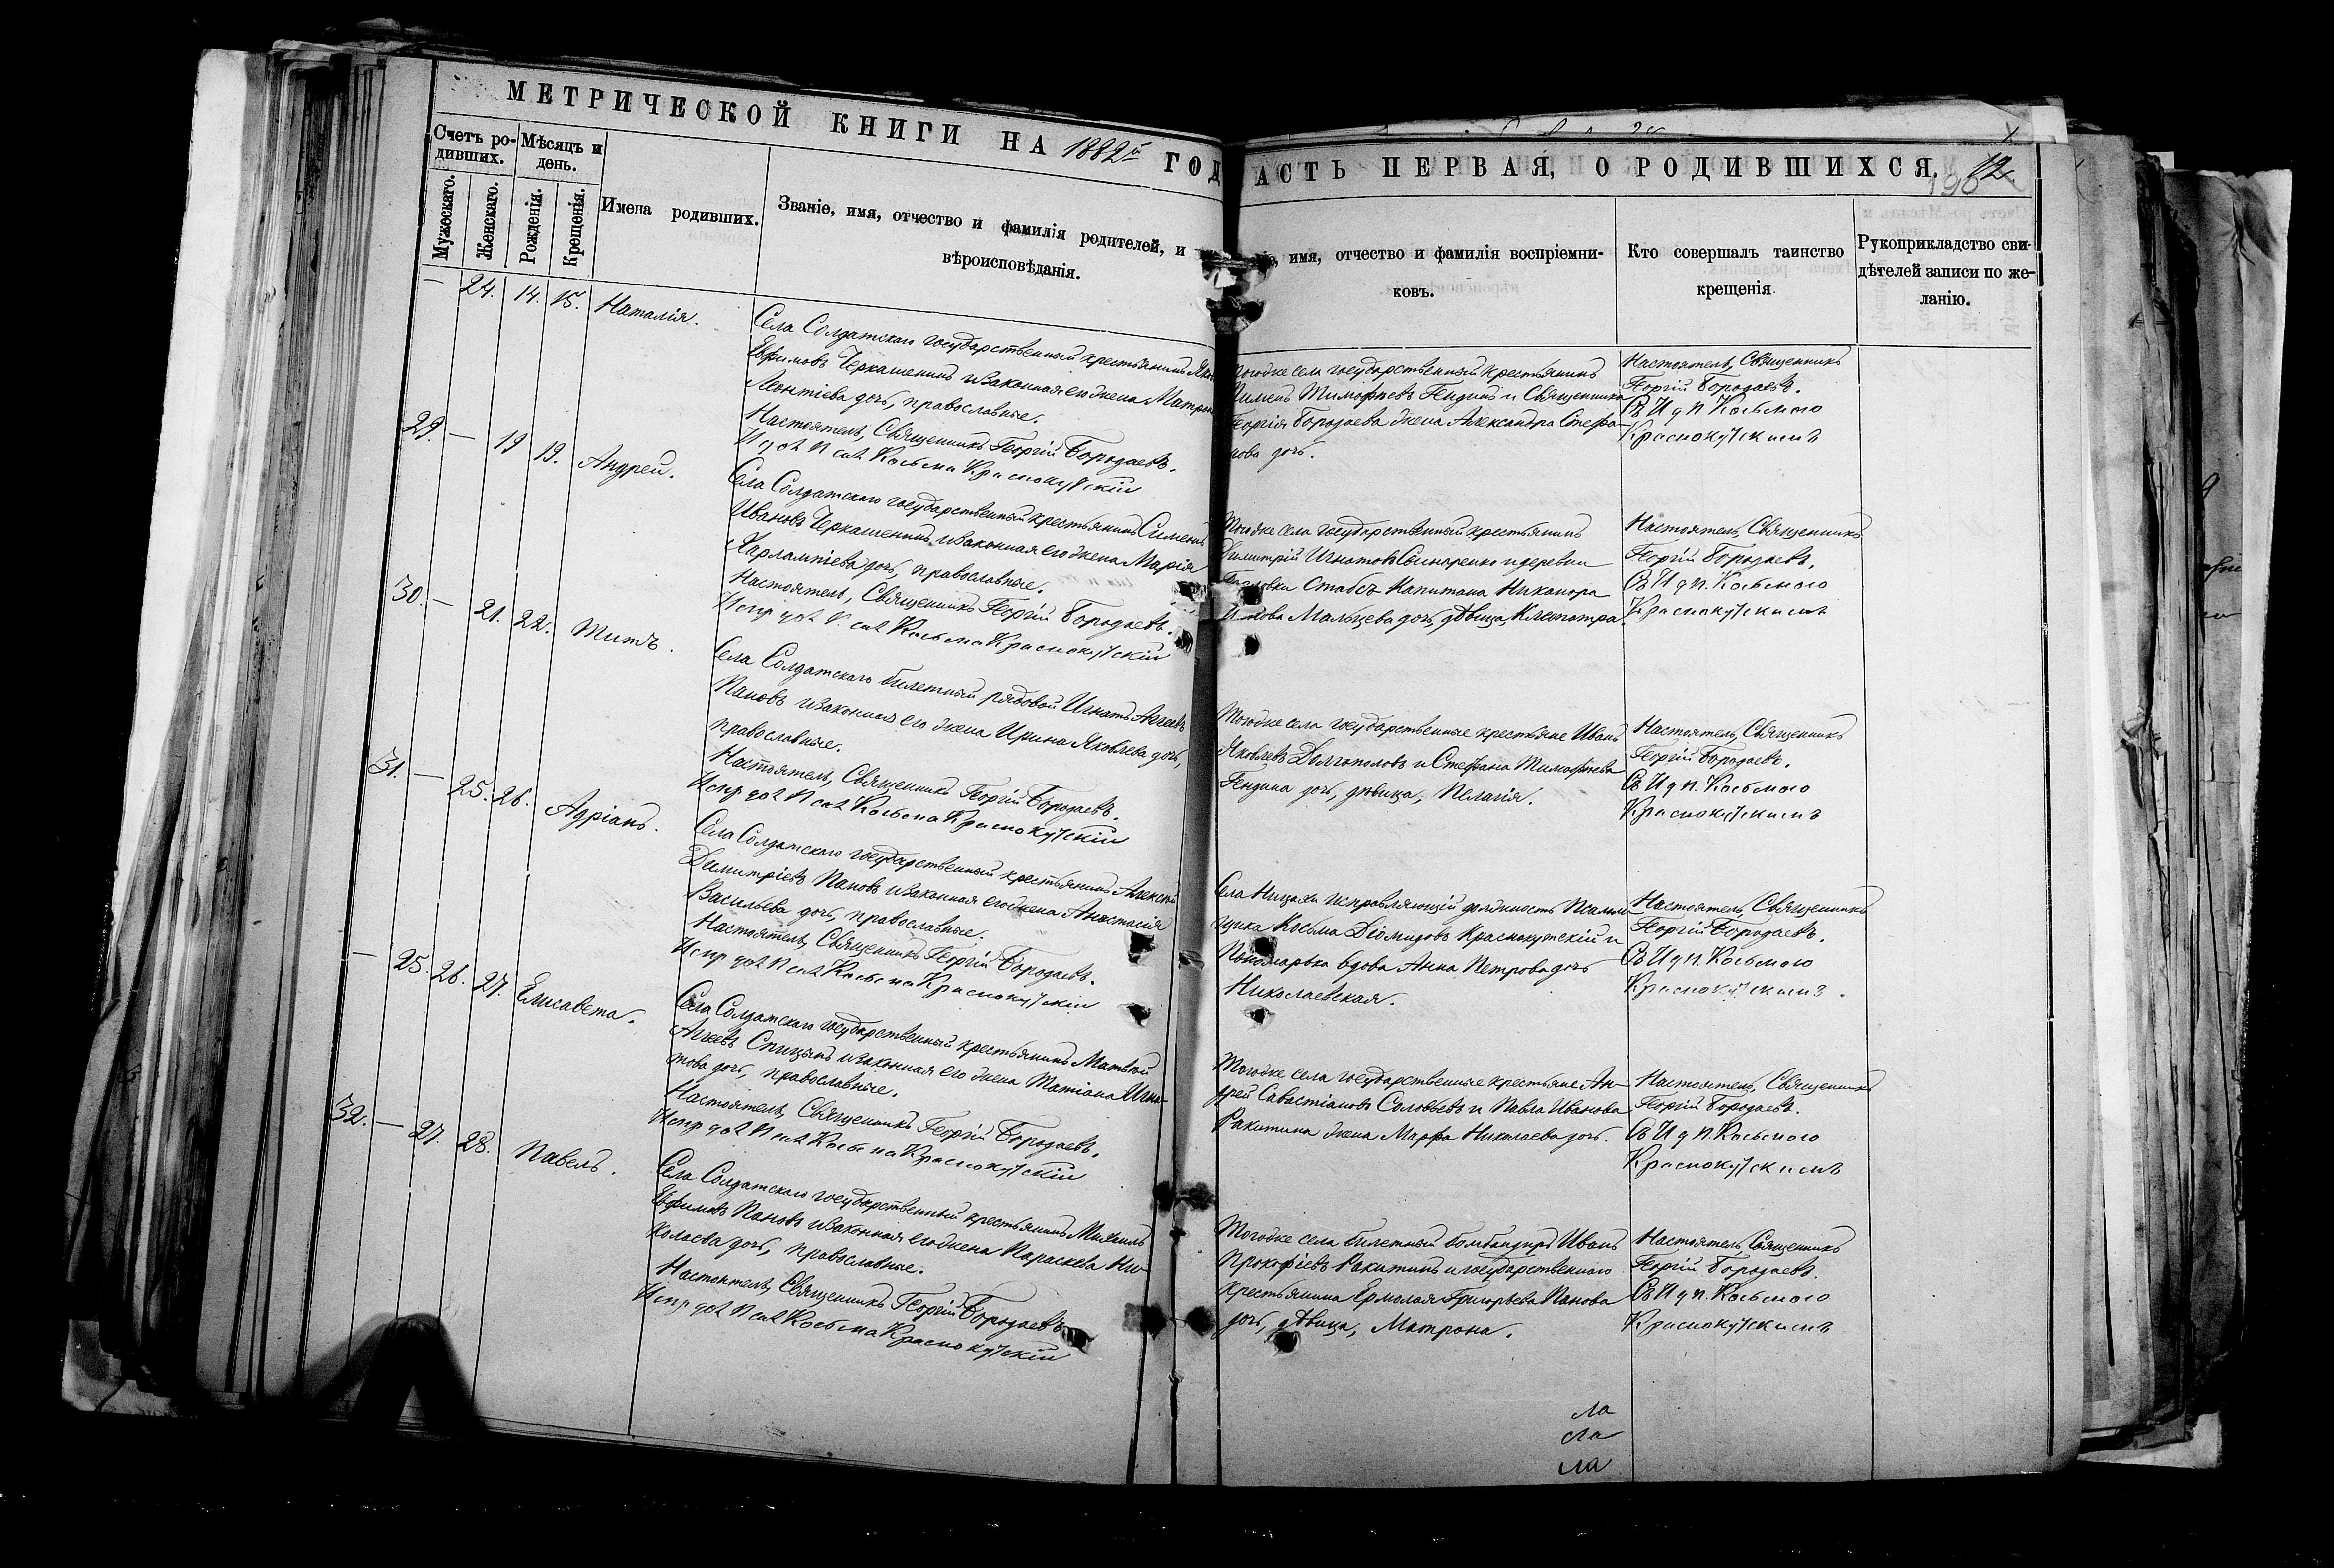 МЕТРИЧЕСКОЙ КНИГИ НА 1882й ГОД
Счетъ ро-
дившихъ.
Мѣсяцъ и
день.
Мужескаго.
Женскаго.
Рожденія.
Крещенія.
Имена родивших.
Званіе, имя, отчество и фамилія родителей, и
вѣроисповѣданія.
— 24. 14. 15. Наталія.
Села Солдатскаго государственный крестьянинъ
Евфимовъ Черкашенинъ и законная его жена Матрон
Леонтіева дочь, православные.
Настоятель, Священникъ Георгій Бородаевъ.
И д Псал Косьма Краснокутскій
29. — 19 19. Андрей.
Села Солдатскаго государственный крестьянинъ Симеонъ
Ивановъ Черкашенинъ и законная его жена Марія
Харлампіева дочь, православные.
Настоятель, Священникъ Георгій Бородаевъ.
Испр дол Псал Косьма Краснокутскій
30. — 21. 22. Титъ.
Села Солдатскаго билетный рядовой Игнатъ Аггеевъ
Пановъ и законная его жена Ирина Яковлева дочь,
православные.
Настоятель, Священникъ Георгій Бородаевъ.
Испр дол Псал Косьма Краснокутскій
31. — 25. 26. Адріанъ.
Села Солдатскаго государственный крестьянинъ Алексѣй
Димитріевъ Пановъ и законная его жена Анастасія
Васильева дочь, православные.
Настоятель, Священникъ Георгій Бородаевъ.
Испр дол Псал Косьма Краснокутскій
— 25. 26. 27. Елисавета.
Села Солдатскаго государственный крестьянинъ Матвѣй
Аггеевъ Спицынъ и законная его жена Татіана Игна-
това дочь, православные.
Настоятель, Священникъ Георгій Бородаевъ.
Испр дол Псал Косьма Краснокутскій
32. — 27. 28. Павелъ.
Села Солдатскаго государственный крестьянинъ Михаилъ
Евфимовъ Пановъ и законная его жена Параскева Ни-
колаева дочь, православные.
Настоятель, Священникъ Георгій Бородаевъ
Испр дол Псал Косьма Краснокутскій
АСТЬ ПЕРВАЯ, О РОДИВШИХСЯ. 12
имя, отчество и фамилія воспріемни-
ковъ.
Кто совершалъ таинство
крещенія.
Рукоприкладство сви-
дѣтелей записи по же-
ланію.
Тогоже села государственный крестьянинъ
Пименъ Тимофѣевъ Гендинъ и Священника
Георгія Бородаева жена Александра Стефа-
нова дочь.
Настоятель, Священникъ
Георгій Бородаевъ.
Съ И д п. Косьмою
Краснокутскимъ
Тогоже села государственный крестьянинъ
Димитрій Игнатовъ Свинаренко и деревни
Штабсъ Капитана Никанора
Мальцева дочь, дѣвица, Клеопатра.
Настоятель, Священникъ
Георгій Бородаевъ.
Съ И д п. Косьмою
Краснокутскимъ
Тогоже села государственные крестьяне Иванъ
Яковлевъ Долгополовъ и Стефана Тимофѣева
Гендина дочь, дѣвица, Пелагія.
Настоятель, Священникъ
Георгій Бородаевъ.
Съ И д п. Косьмою
Краснокутскимъ
Села Ницахи исправляющій должность Псалом-
щика Косьма Діомидовъ Краснокутскій и
Пономарька вдова Анна Петрова дочь
Николаевская.
Настоятель, Священникъ
Георгій Бородаевъ.
Съ И д п. Косьмою
Краснокутскимъ.
Тогоже села государственные крестьяне Ан-
дрей Савастіановъ Соловьевъ и Павла Иванова
Ракитина жена Марфа Николаева дочь.
Настоятель, Священникъ
Георгій Бородаевъ.
Съ И д п. Косьмою
Краснокутскимъ
Тогоже села билетный бомбандиръ Иванъ
Прокофіевъ Ракитинъ и государственнаго
крестьянина Ермолая Григорьева Панова
дочь, дѣвица, Матрона.
Настоятель, Священникъ
Георгій Бородаевъ.
Съ И д п. Косьмою
Краснокутскимъ
ла
ла
ла